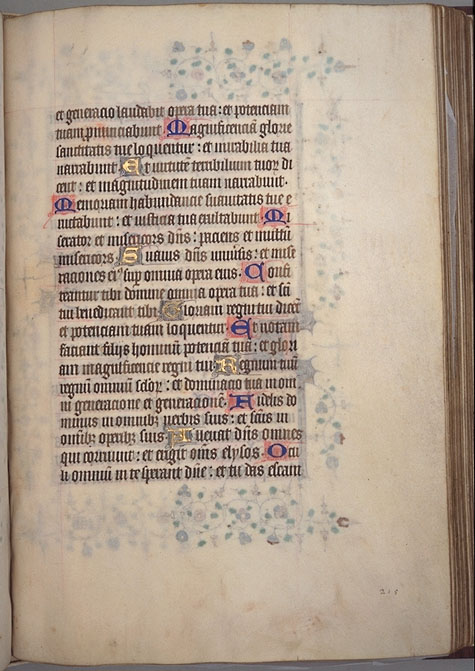 et generacio laudabit opera tua: et potenciam
tuam pnunciabunt. Magnificenciā glorie
sanctitatis tue loquentur: et mirabilia tua
narrabunt. Et virtutē terribilium tuoꝝ di
cent: et magnitudinem tuam narrabunt.
Memoriam habundancie suavitatis tue e
ructabunt: et iusticia tua exultabunt. Mi
serator et misericors dn̄s: paciens et multū
misericors. Suavis dn̄s univsis: et mise
raciones eiꝰ sup omnia opera eius. Confi
teantur tibi domine omnia opera tua: et sc̄i
tui benedicant tibi. Gloriam regni tui dicēt
et potenciam tuam loquentur. Et notam
faciant filijs hominum potenciā tuā: et glori
am magnificencie regni tui. Regnum tuū
regnū omniū sc̄loꝝ: et dominacio tua in om
ni generacione et generacionē. Fidelis do
minus in omnibꝫ verbis suis: et sc̄us in
om̄ibꝫ operibꝫ suis. Allevat dn̄s omnes
qui corruunt: et erigit om̄s elysos. Ocu
li omniū in te sperant dn̄e: et tu das escam
205